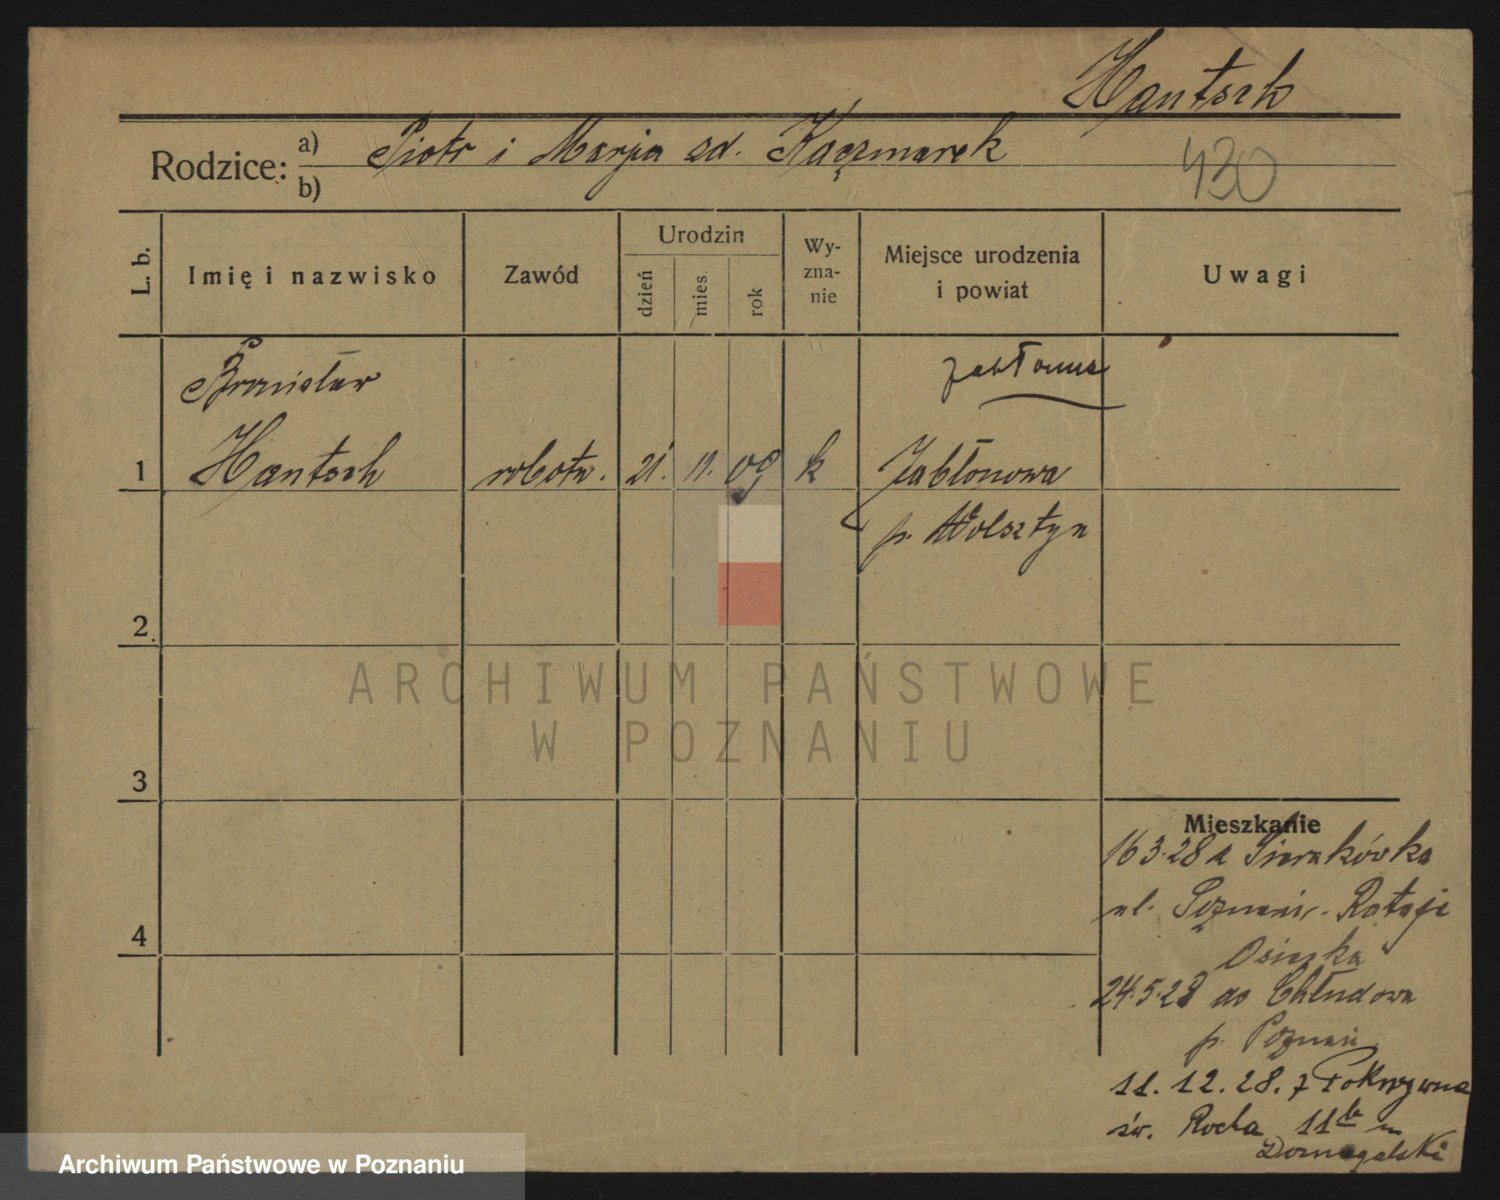 Hantsch
Rodzice: a) Piotr i Marja zd. Kaczmarek
b)
430
L. b.
Imię i nazwisko
Zawód
Urodzin
dzień
mies.
rok
Wy-
zna-
nie
Miejsce urodzenia
i powiat
Uwagi
Bronisław
Jabłonna
1 Hantsch robotn. 21. 11. 09 k Jabłonowa
p. Wolsztyn
2.
3
4
ARCHIWUM PAŃSTWOWE
W POZNANIU
Mieszkanie
16 3.28 z Sierakówka
ul. Poznań - Rataje
Osiecka
24.5.28 do Chludowa
p. Poznań
11. 12. 28. z Pokrzywna
św. Rocha 11b u
Domagalski
Archiwum Państwowe w Poznaniu